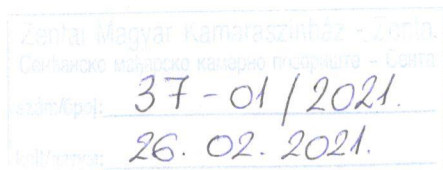 Zentai Magyar Kamaraszínház - Zenta
Сенћанско мађарско камерно позориште – Сента
szám/број: 37-01/2021.
26. 02. 2021.